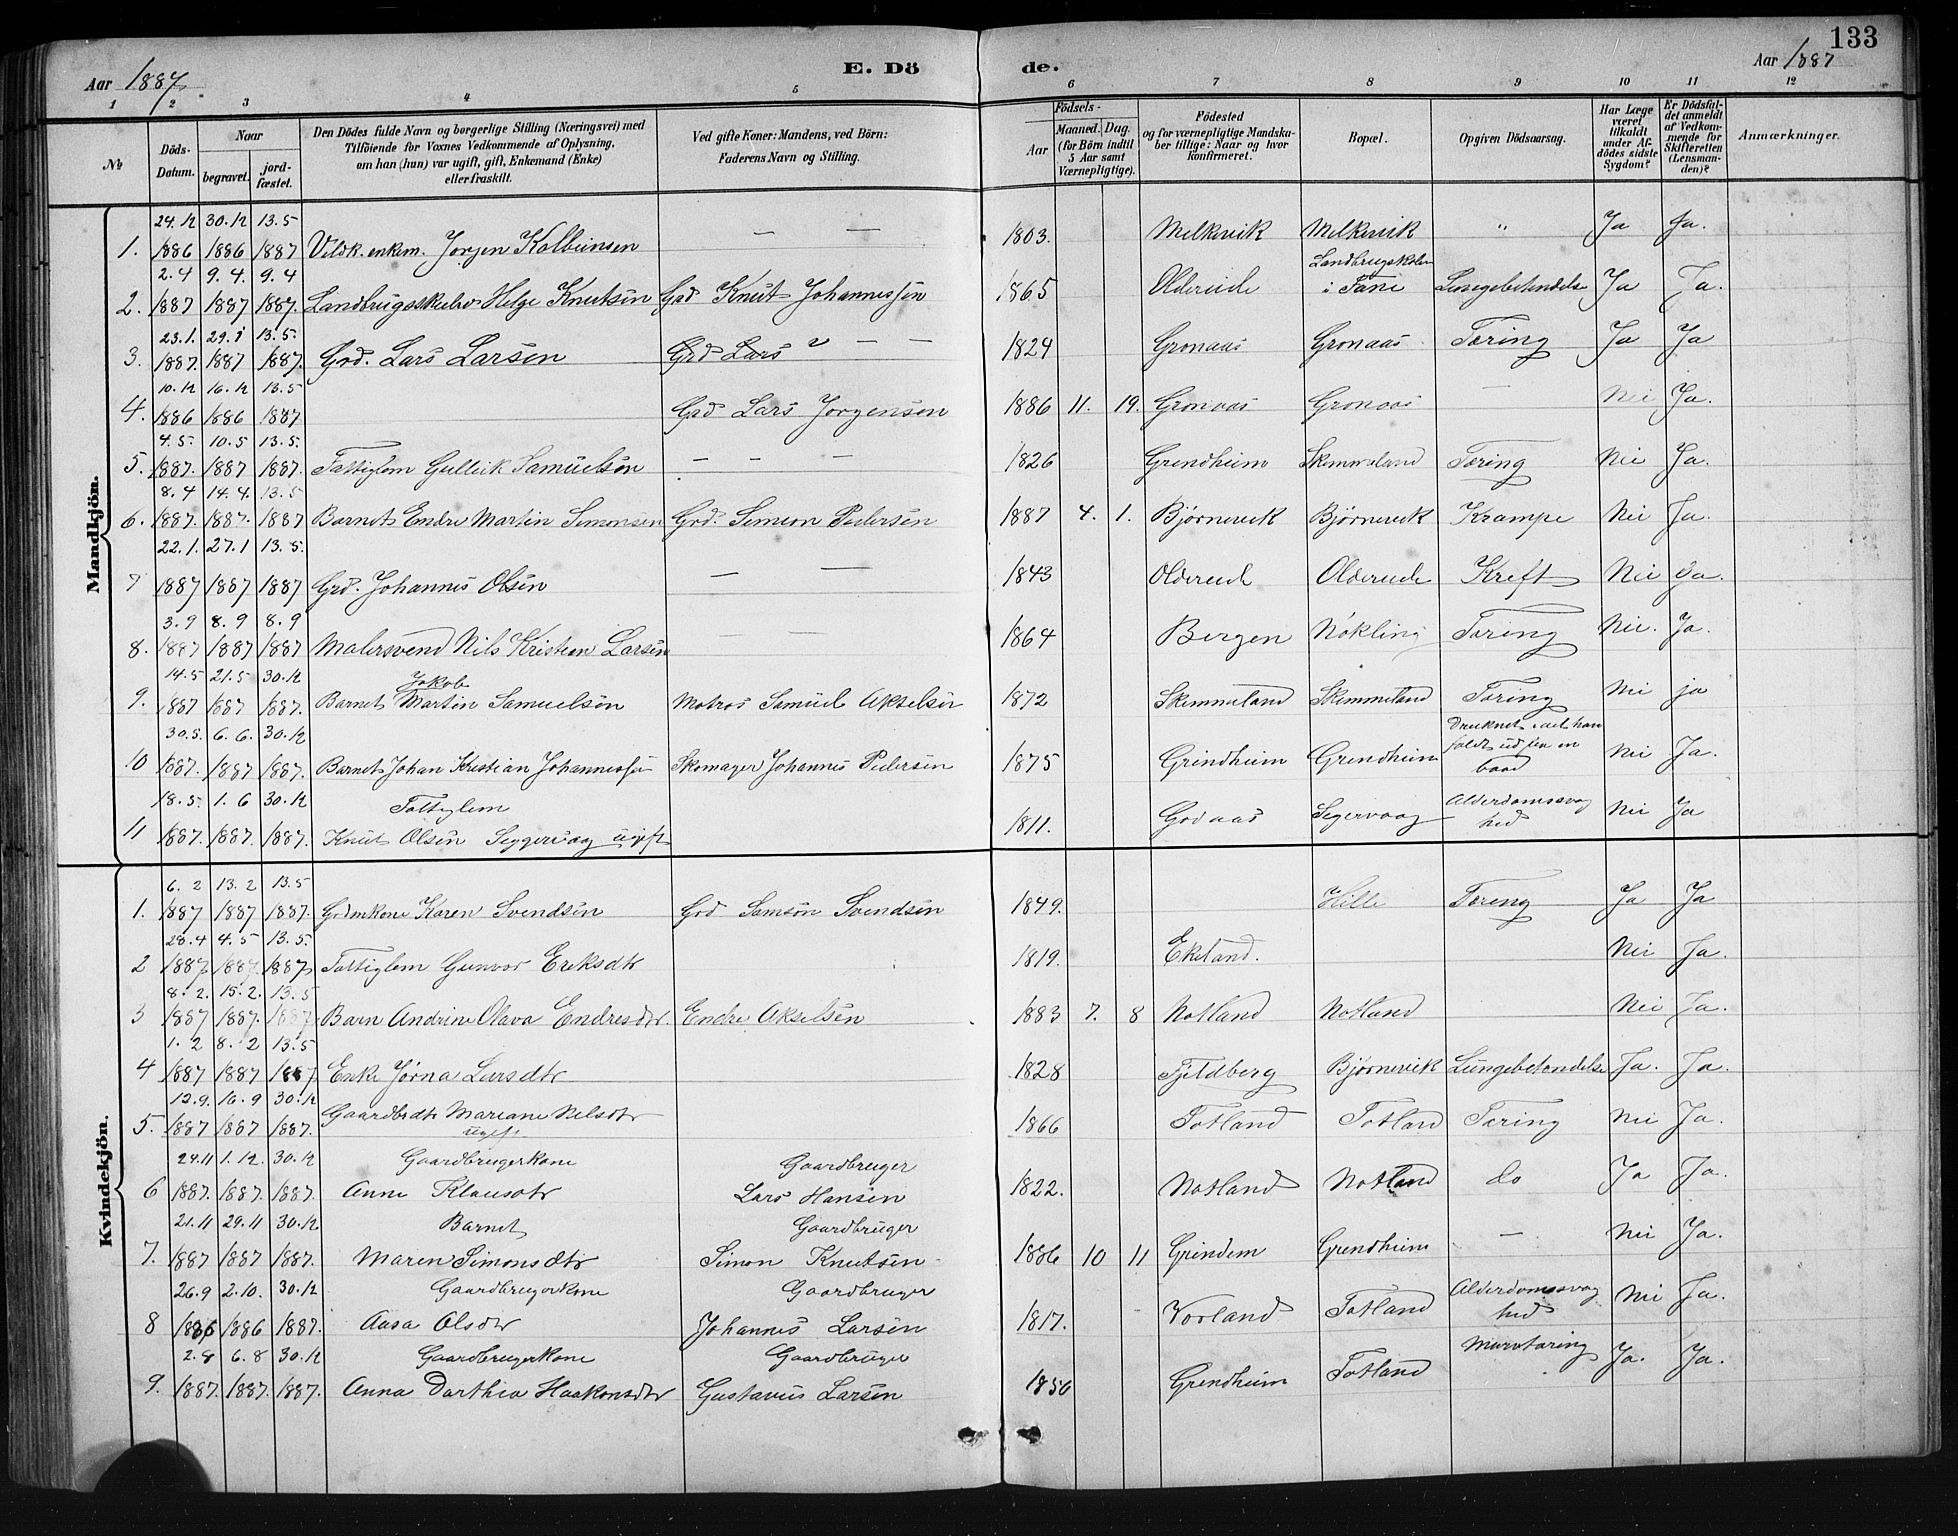 133
Aar 1887
E. Dö
de.
Aar 1887
1 2 3 4 5 6 7 8 9 10 11 12
№
Döds-Datum.
Naar
begravet.
jord-fæstet.
Den Dödes fulde Navn og borgerlige Stilling (Næringsvei) med
Tilföiende for Voxnes Vedkommende af Oplysning,
om han (hun) var ugift, gift, Enkemand (Enke)
eller fraskilt.
Ved gifte Koner: Mandens, ved Börn:
Faderens Navn og Stilling.
Födsels-
Aar
Maaned. Dag.
(for Börn indtil
5 Aar samt
Værnepligtige).
Födested
og for værnepligtige Mandska-
ber tillige: Naar og hvor
konfirmeret.
Bopæl.
Opgiven Dödsaarsag.
Har Læge
været
tilkaldt
under Af-
dödes sidste
Sygdom?
Er Dödsfal-
det anmeldt
af Vedkom-
mende for
Skifteretten
(Lensman-
den)?
Anmærkninger.
Mandkjön.
24.12 30.12 13.5
1. 1886 1886 1887 enkem. Jorgen Kolbeinsen — — 1803. Melkevik Melkevik " Ja Ja.
2.4 9.4. 9.4
2. 1887 1887 1887. Landbrugsskelev Helge Knutsen Grd Knut Johannessen 1865 Oldervide Landbrugskolen i Fane Lungebetendelse Ja Ja.
23.1. 29.1 13.5.
3. 1887. 1887 1887. Grd. Lars Larsen Grd Lars — — 1824 Gronaas Gronaas Tæring Ja Ja
10.12 16.12 13.5
4. 1886 1886 1887 Grd Lars Jorgensen 1886 11. 19. Gronaas Gronaas — Nei Ja.
4.5. 10.5 13.5.
5. 1887. 1887 1887. Fattiglem Gullik Samuelsen — — — 1826 Grendheim Skemmeland Tæring Nei Ja.
8.4 14.4. 13.5
6. 1887. 1887. 1887 Barnet Endre Martin Simonsen Grd. Simeon Pedersen 1887 4. 1. Bjørnevik Bjørnevik Krampe Nei Ja.
22.1. 27.1 13.5.
7 1887 1887 1887 Grd. Johannes Olsen — — 1843 Oldervid Oldervide Kreft Nei Ja.
3.9 8.9 8.9
8. 1887 1887 1887 Malersvend Nils Kristian Larsen — — 1864 Bergen Nökling Tæring Nei. Ja.
14.5 21.5 30.12
9. 1887 1887 1887. Barnet Jakob Martin Samuelsen Matros Samuel Akselsen 1872 Skemmeland Skemmeland Tæring Nei ja
30.5. 6.6. 30.12
10 1887. 1887 1887. Barnet Johan Kristian Johannessen Skomager Johannes Pedersen 1875 Grindheim Grendheim Druknet, i det han faldt ud fra en baad Nei Ja.
18.5. 1.6 30.12 Fattiglem
11 1887. 1887. 1887. Knut Olsen Seggervaag ugift 1811. Godaas Segervaag Alderdomssvaghed Nei Ja
Kvindekjön.
6.2 13.2 13.5
1. 1887 1887 1887. Grdmkone Karen Svendsen Grd Samson Svendsen 1849. Hille Tæring Ja Ja
28.4 4.5 13.5.
2 1887 1887. 1887 Fattiglem Gunvor Eriksdtr 1819. Ekeland. Nei Ja.
8.2. 15.2. 13.5
3 1887 1887. 1887. Barn Andrine Olava Endresdtr. Endre Akselsen 1883 7. 8 Notland Notland Nei Ja.
1.2 8.2 13.5
4 1887 1887 1887 Enke Jørna Larsdtr 1828 Fjeldberg Bjørnevik Lungebetendelse Ja. Ja.
12.9. 16.9 30.12
5. 1887 1887 1887. Gaardbrdtr Mariane Nelsdtr ugift 1866 Totland Totland Tæring Nei Ja.
24.11 1.12. 30.12 Gaardbrugerkone Gaardbruger
6 1887. 1887. 1887. Anne Klausdtr Lars Hansen 1822. Notland Notland do Ja Ja.
21.11 29.11 30.12 Barnet Gaardbruger
7. 1887 1887 1887. Maren Simonsdtr Simon Knutsen 1886 10 11 Grindem Grendheim — Nei Ja.
26.9 2.10. 30.12 Gaardbrugerkone Gaardbruger
8 1886 1886 1887. Aasa Olsdtr Johannes Larsen 1817. Vorland Totland Alderdomssvaghed Nei Ja.
2.8 6.8 30.12 Gaardbrugerkone Gaardbruger
9. 1887. 1887. 1887. Anna Dorthea Haakonsdtr Gustavus Larsen 1850 Grendheim Totland Ja. Ja.